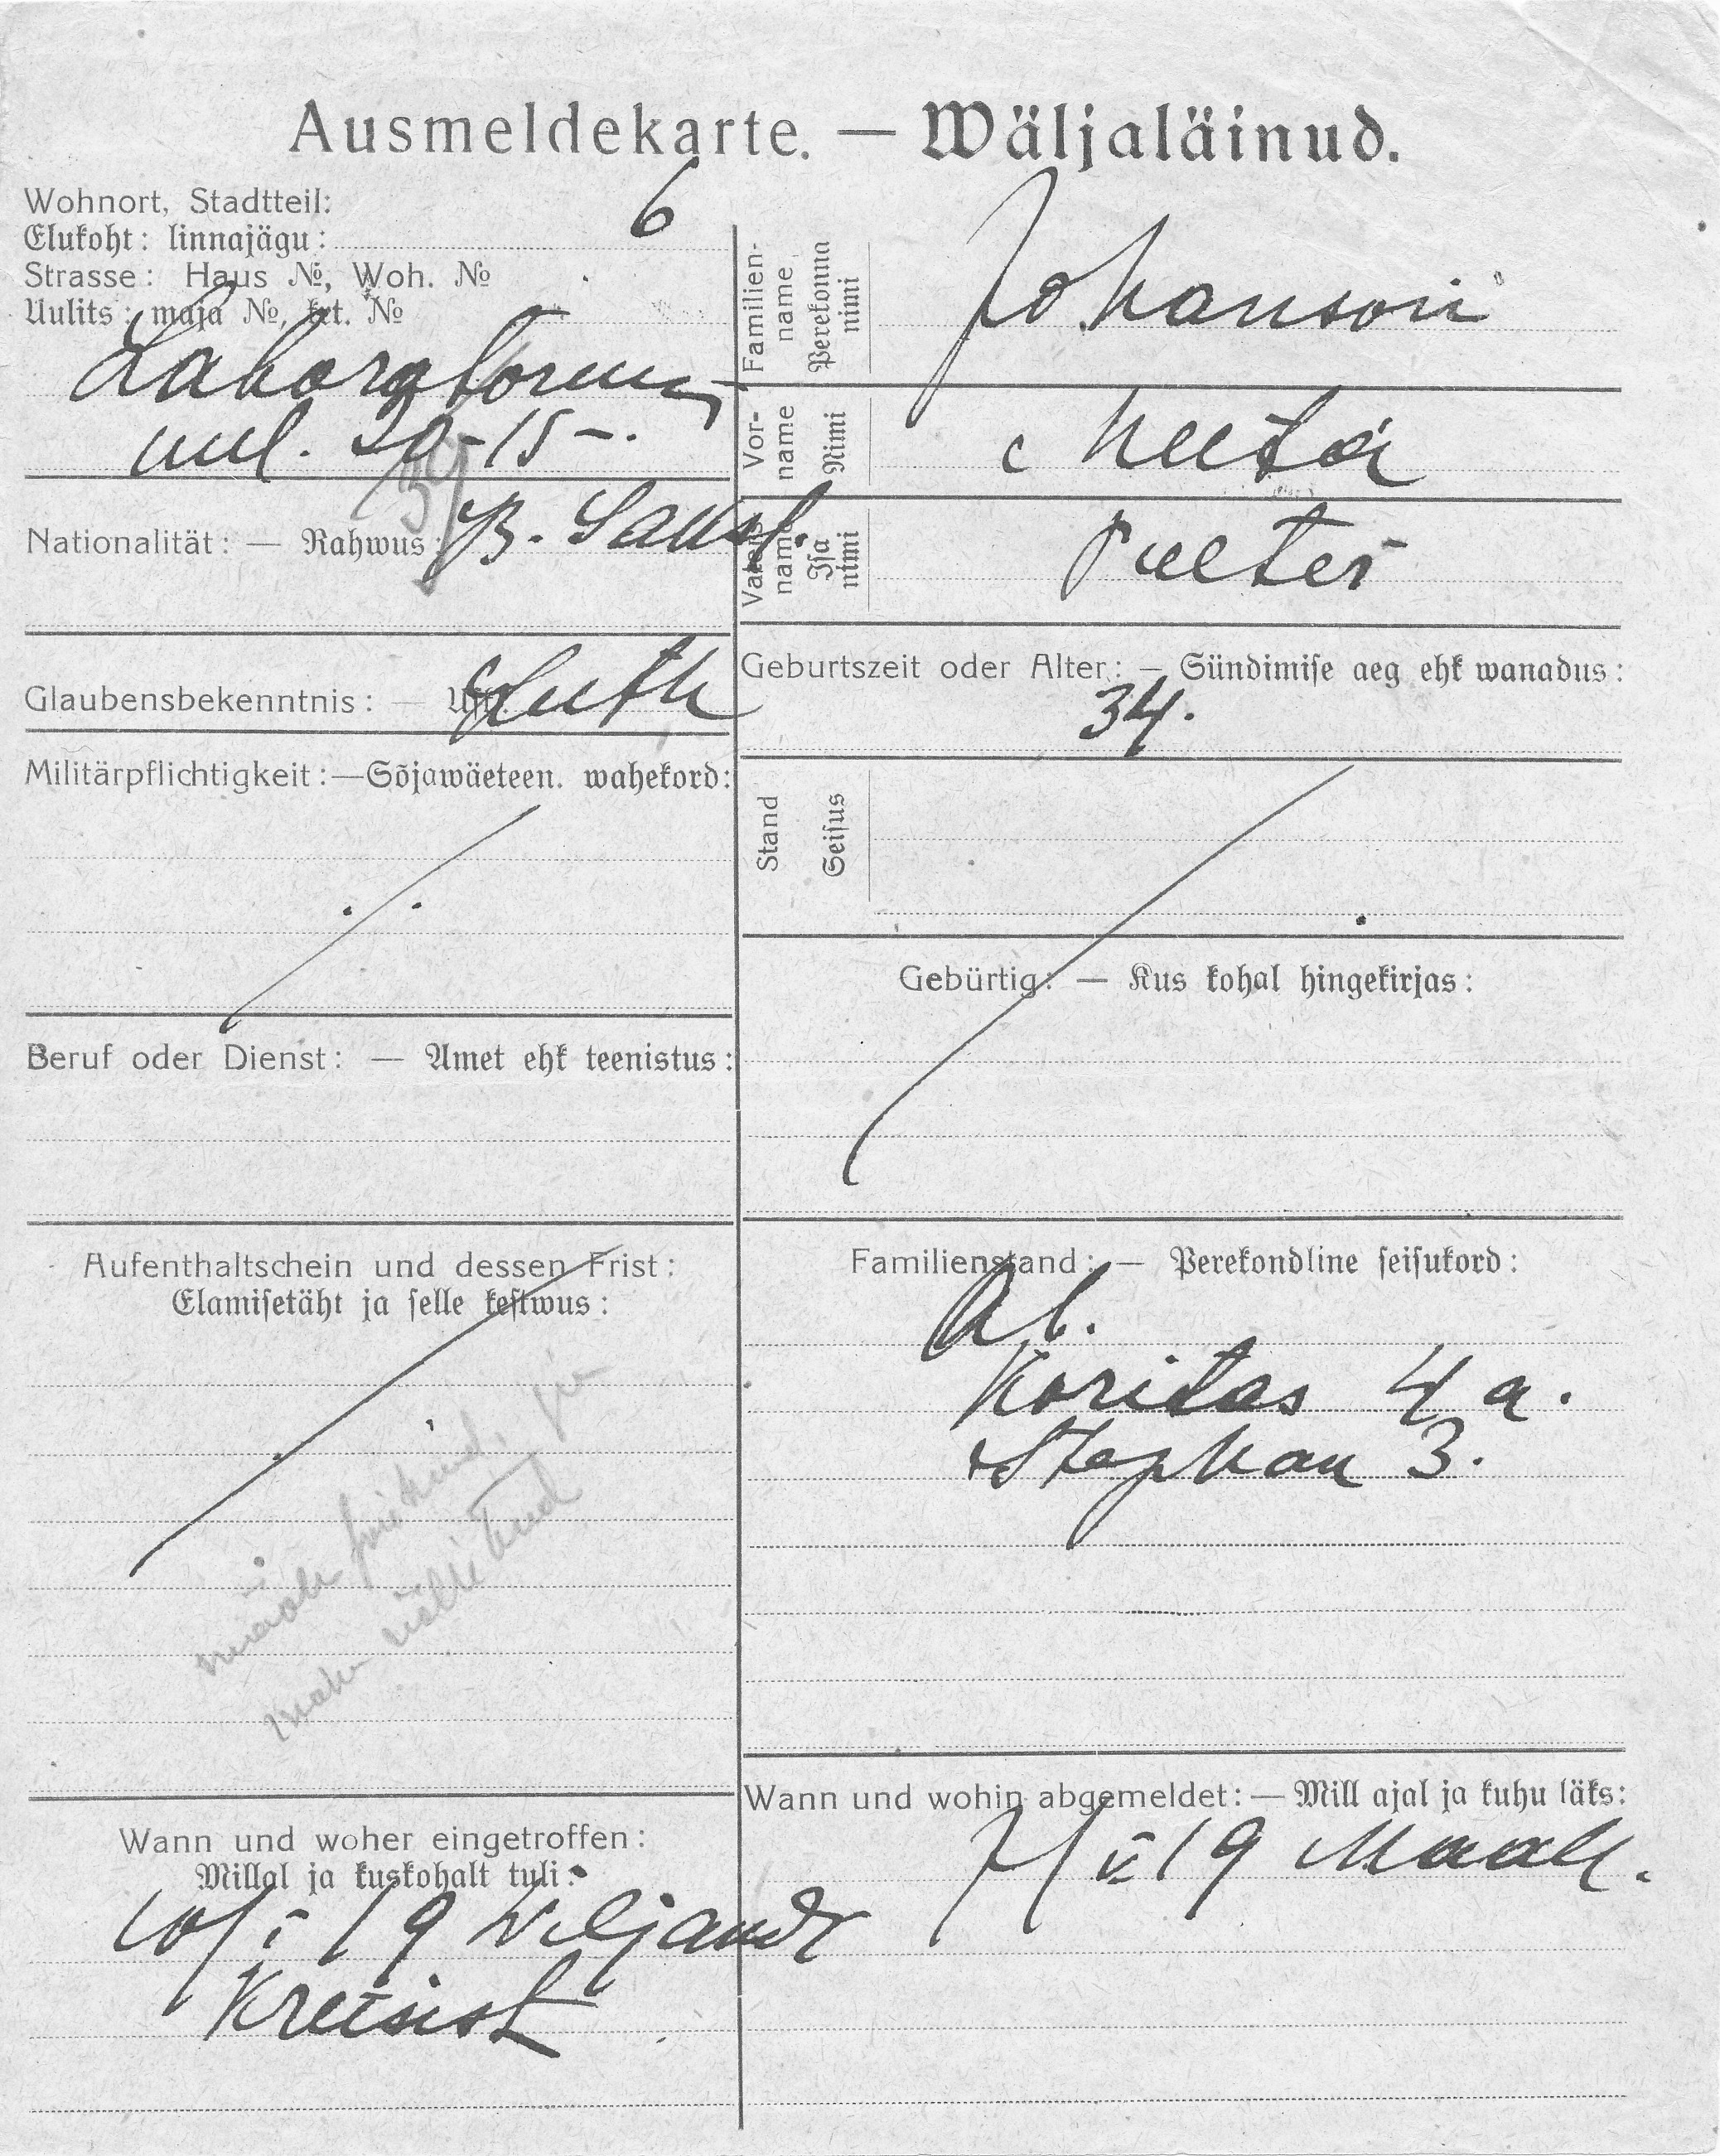 Ausmeldekarte. — Wäljaläinud.
Wohnort, Stadtteil:
Elukoht: linnajägu: 6
Strasse: Haus №, Woh. №
Uulits: maja №, krt. №
uul. 20-15-.
39
Nationalität: — Rahwus:
Glaubensbekenntnis: — Usk. Luth
Militärpflichtigkeit:—Sõjawäeteen. wahekord:
Beruf oder Dienst: — Amet ehk teenistus:
Aufenthaltschein und dessen Frist:
Elamisetäht ja selle kestwus:
Wann und woher eingetroffen:
Millal ja kuskohalt tuli:
10/I 19 Wiljandi
Kreisist
Familien-
name
Perekonna
nimi
Johanson
Vor-
name
Nimi
Meeta
Vaters
name
Isa
nimi
Peeter
Geburtszeit oder Alter: — Sündimise aeg ehk wanadus:
34.
Stand
Seisus
Gebürtig: — Kus kohal hingekirjas:
Familienstand: — Perekondline seisukord:
Ab.
Koridas 4 a.
Stephan 3.
Wann und wohin abgemeldet: — Mill ajal ja kuhu läks:
7/V 19 Maale.